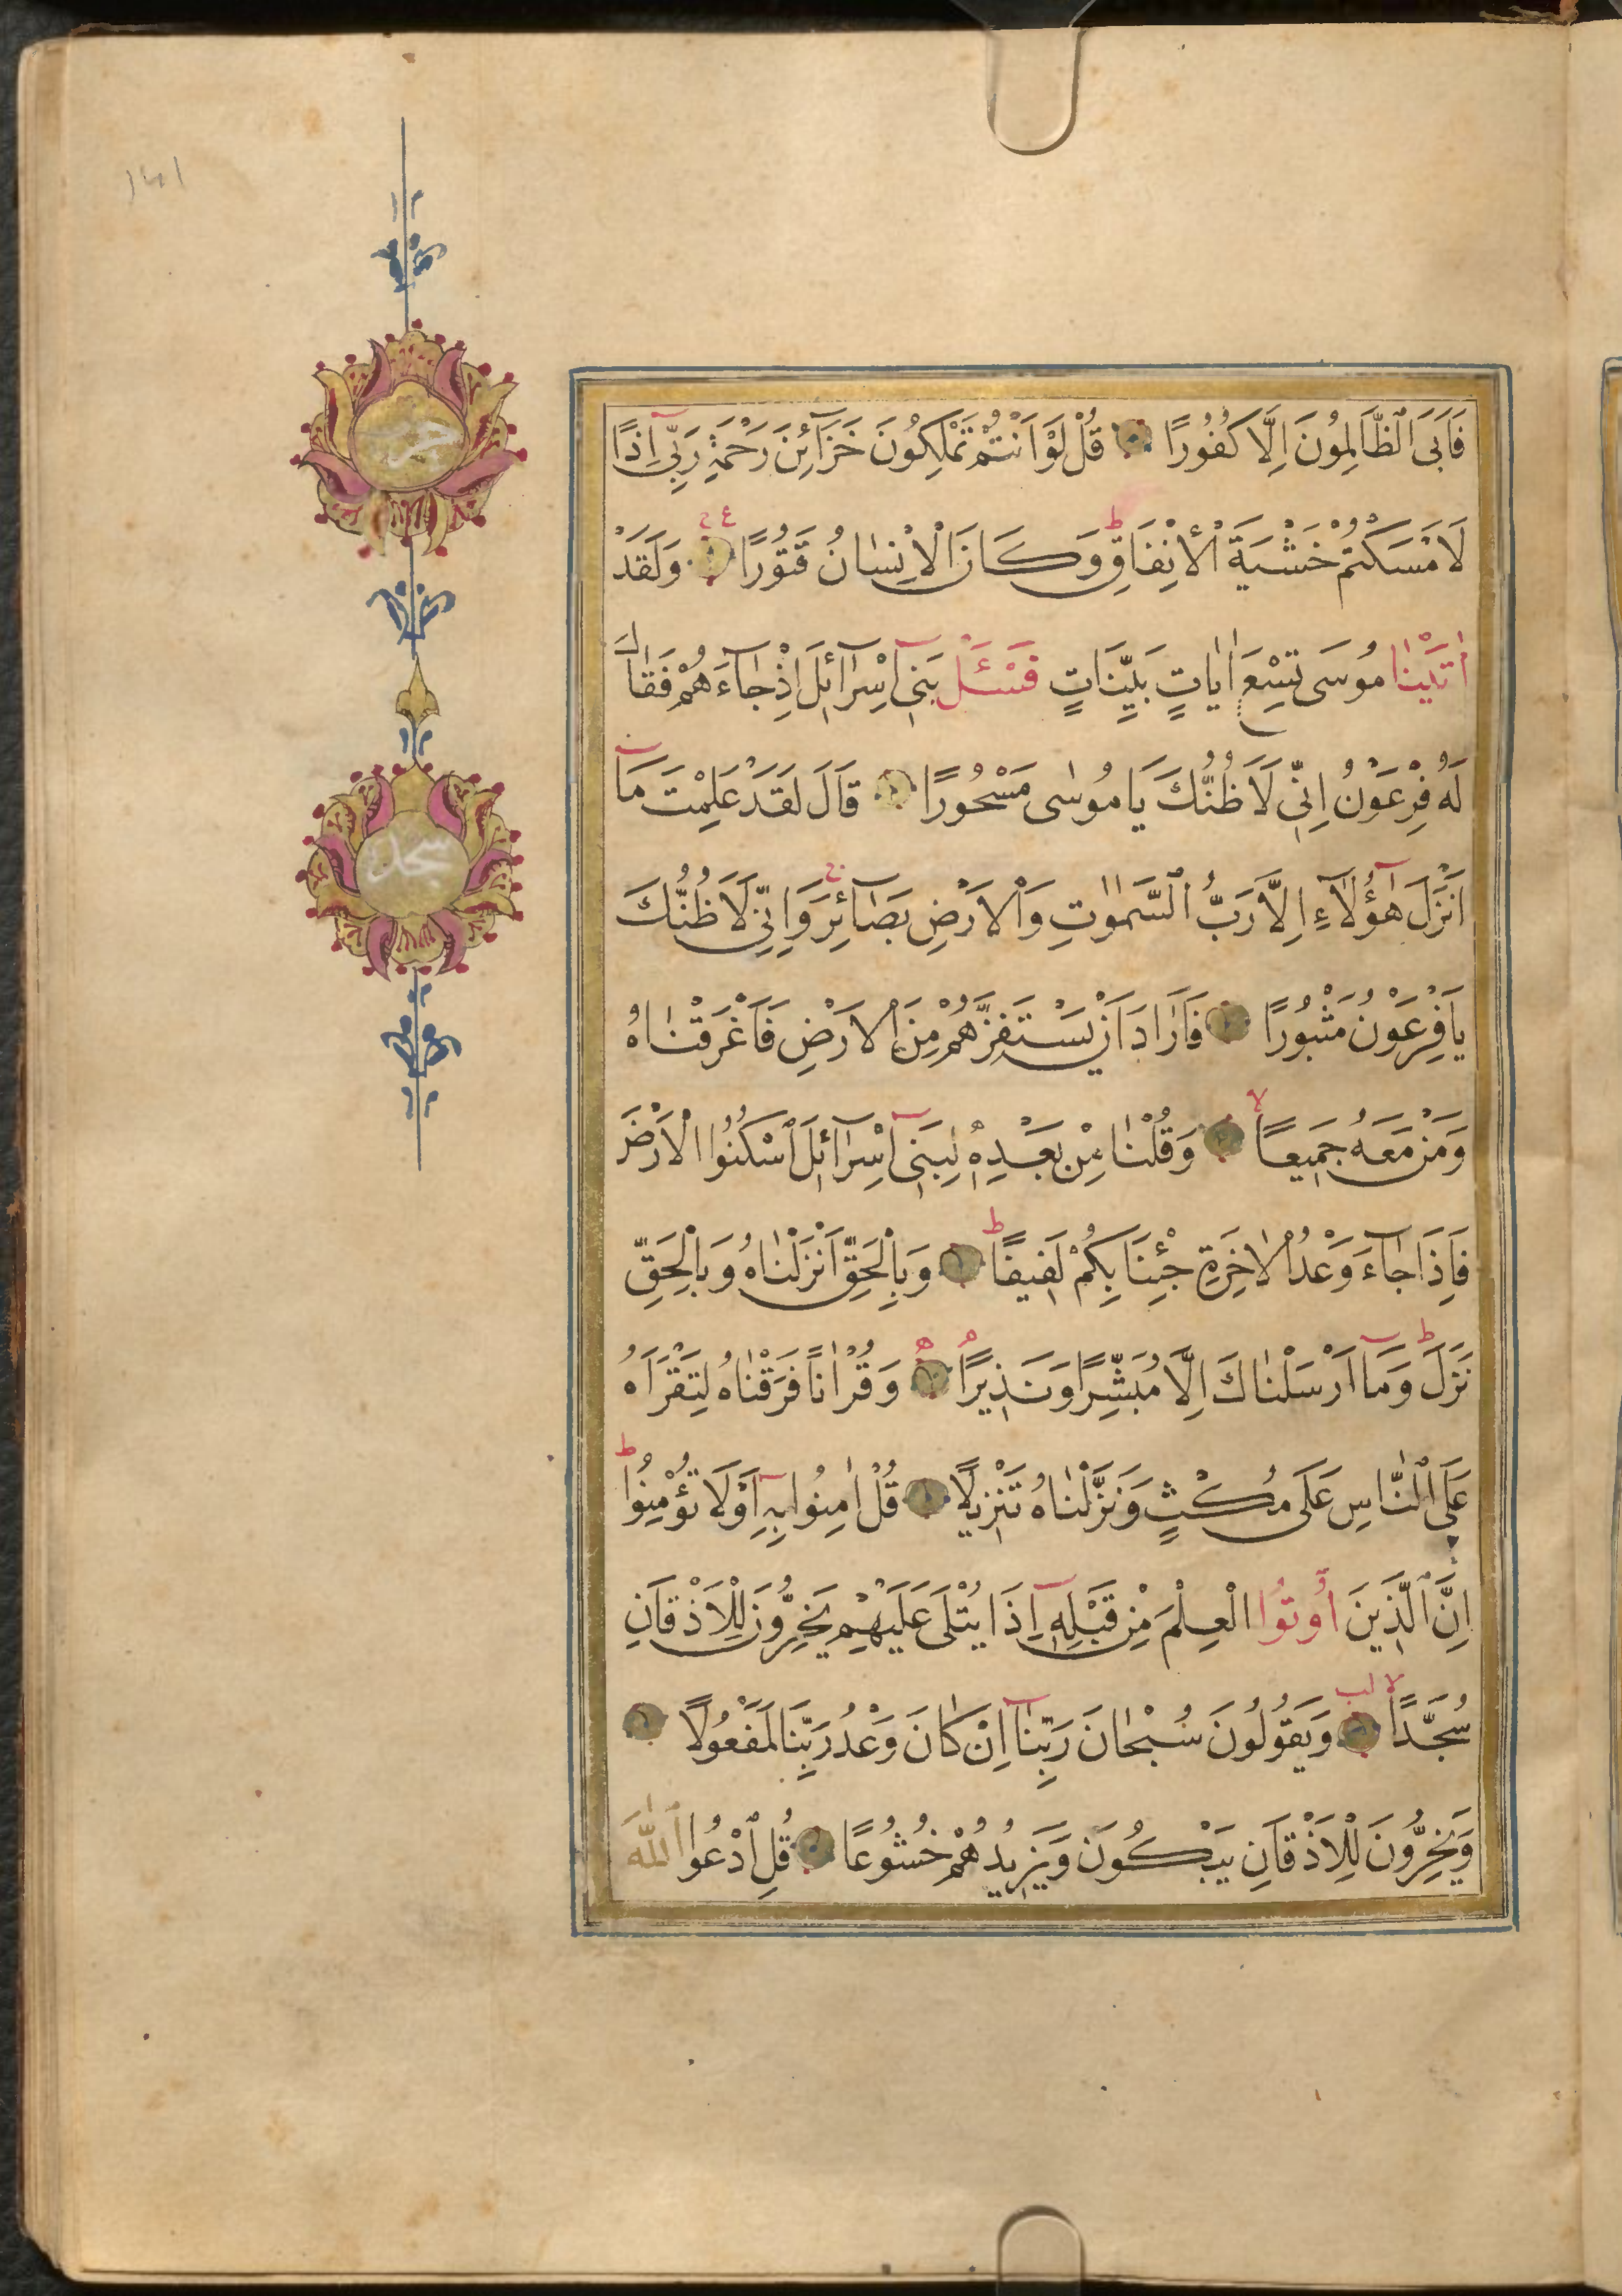 فَاَبَى ٱلظَّالِمُونَ اِلَّا كُفُورًا قُلْ لَوْ اَنْتُمْ تَمْلِكُونَ خَزَآئِنَ رَحْمَةِ رَبِّىٓ اِذًا
لَاَمْسَكْتُمْ خَشْيَةَ ٱلْاِنْفَاقِ ط وَكَانَ الْاِنْسَانُ قَتُورًا ع ج وَلَقَدْ
اٰتَيْنَا مُوسَى تِسْعَ اٰيَاتٍ بَيِّنَاتٍ فَسْـَٔلْ بَنِىٓ اِسْرَآئِلَ اِذْ جَآءَهُمْ فَقَالَ
لَهُ فِرْعَوْنُ اِنِّى لَاَظُنُّكَ يَا مُوسٰى مَسْحُورًا قَالَ لَقَدْ عَلِمْتَ مَآ
اَنْزَلَ هٰٓؤُلَآءِ اِلَّا رَبُّ ٱلسَّمٰوَاتِ وَالْاَرْضِ بَصَآئِرَ ج وَاِنِّى لَاَظُنُّكَ
يَا فِرْعَوْنُ مَثْبُورًا فَاَرَادَ اَنْ يَسْتَفِزَّهُمْ مِنَ الْاَرْضِ فَاَغْرَقْنَاهُ
وَمَنْ مَعَهُ جَمِيعًا لا وَقُلْنَا مِنْ بَعْدِهٖ لِبَنِىٓ اِسْرَآئِلَ ٱسْكُنُوا الْاَرْضَ
فَاِذَا جَآءَ وَعْدُ الْاٰخِرَةِ جِئْنَا بِكُمْ لَفِيفًا ط وَبِالْحَقِّ اَنْزَلْنَاهُ وَبِالْحَقِّ
نَزَلَ ط وَمَآ اَرْسَلْنَاكَ اِلَّا مُبَشِّرًا وَنَذِيرًا م وَقُرْاٰنًا فَرَقْنَاهُ لِتَقْرَاَهُ
عَلَى ٱلنَّاسِ عَلَى مُكْثٍ وَنَزَّلْنَاهُ تَنْزِيلًا قُلْ اٰمِنُوا بِهٖٓ اَوْ لَا تُؤْمِنُوا ط
اِنَّ ٱلَّذِينَ اُوتُوا الْعِلْمَ مِنْ قَبْلِهٖٓ اِذَا يُتْلَى عَلَيْهِمْ يَخِرُّونَ لِلْاَذْقَانِ
سُجَّدًا لا لب وَيَقُولُونَ سُبْحَانَ رَبِّنَآ اِنْ كَانَ وَعْدُ رَبِّنَا لَمَفْعُولًا
وَيَخِرُّونَ لِلْاَذْقَانِ يَبْكُونَ وَيَزِيدُهُمْ خُشُوعًا قُلِ ٱدْعُوا ٱللّٰهَ
حزب
سجدة